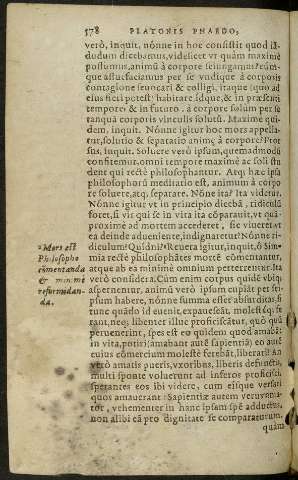 578 PLATONIS PHAEDO,
verò, inquit, nónne in hoc consistit quod iã-
dudum dicebamus, videlicet vt quàm maximè
possumus, animũ à corpore seiungamus? eúm-
que assuefaciamus per se vndique à corporis
contagione seuocari & colligi, itaque (quo ad
eius fieri potest) habitare idque, & in præsenti
tempore & in futuro, à corpore solum per se
tanquã corporis vinculis solutũ. Maximè qui-
dem, inquit. Nónne igitur hoc mors appella-
tur, solutio & separatio animę à corpore? Pror
sus, inquit. Soluere verò ipsum, quemadmodũ
confitemur, omni tempore maximè ac soli stu
dent qui rectè philosophantur. Atq; hæc ipsa
philosophorũ meditatio est, animum à corpo
re soluere, atq; separare. Nónne ita? Ita videtur.
Nónne igitur vt in principio dicebã, ridiculũ
foret, si vir qui se in vita ita cõparauit, vt quã
proximè ad mortem accederet, sic viueret, vt
ea deinde adueniente, indignaretur? Nónne ri-
diculum? Quidni? Reuera igitur, inquit, ô Sim-
mia rectè philosophãtes mortẽ cõmentantur,
atque ab ea minimè omnium perterrentur. Ita
verò considera. Cum enim corpus quidẽ vbiq;
aspernentur, animã verò ipsum cupiãt per se i-
psum habere, nónne summa esset absurditas, si
tunc quãdo id euenit, expauescãt, molestéq; fe
rant, neq; libenter illuc proficiscãtur, quò quũ
peruenerint, spes est eo quidem quod amabãt
in vita, potiri (amabant autẽ sapientiã) eo autẽ
cuius cõmercium molestè ferebãt, liberari? An
verò amatis pueris, vxoribus, liberis defunctis,
multi sponte voluerunt ad inferos proficisci,
sperantes eos ibi videre, cum eísque versari
quos amauerant: Sapientiæ autem verus ama-
tor, vehementer in hanc ipsam spẽ adductus,
non alibi eã pro dignitate se comparaturum,
quàm
² Mors est
Philosopho
cõmentanda
& minimè
reformidan-
da.